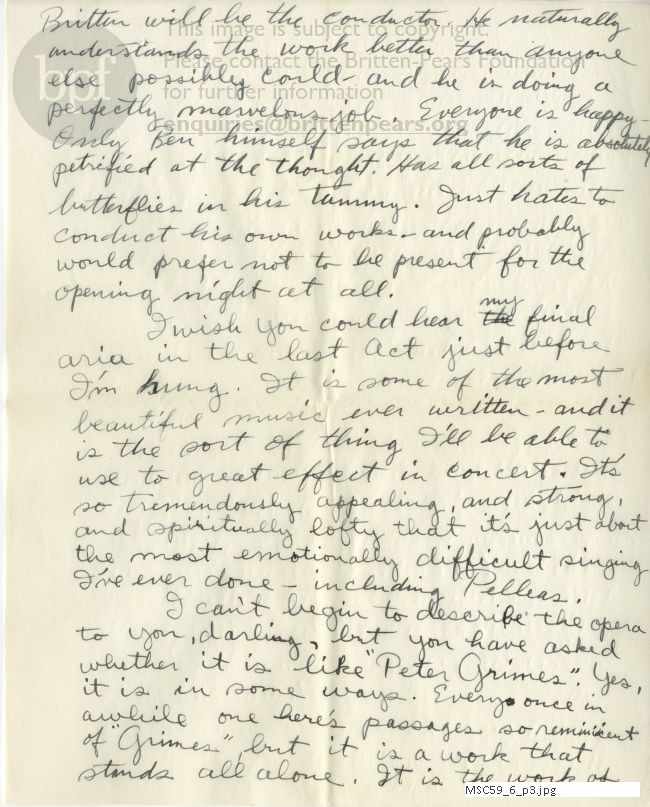 Britten will be the conductor. He naturally
This image is subject to copyright.
understands the work better than anyone
Please contact the Britten-Pears Foundation
else possibly could - and he is doing a
for further information
bpf
perfectly marvelous job. Everyone is happy -
enquiries@brittenpears.org
Only Ben himself says that he is absolutely
petrified at the thought. Has all sorts of
butterflies in his tummy. Just hates to
conduct his own works - and probably
would prefer not to be present for the
opening night at all.
my
I wish you could hear the final
aria in the last Act just before
I'm hung. It is some of the most
beautiful music ever written - and it
is the sort of thing I'll be able to
use to great effect in concert. It's
so tremendously appealing, and strong,
and spiritually lofty that it's just about
the most emotionally difficult singing
I've ever done - including Pelleas.
I can't begin to describe the opera
to you, darling, but you have asked
whether it is like "Peter Grimes". Yes,
it is in some ways. Every once in
awhile one hears passages so reminicent
of "Grimes", but it is a work that
stands all alone. It is the work of
MSC59_6_p3.jpg